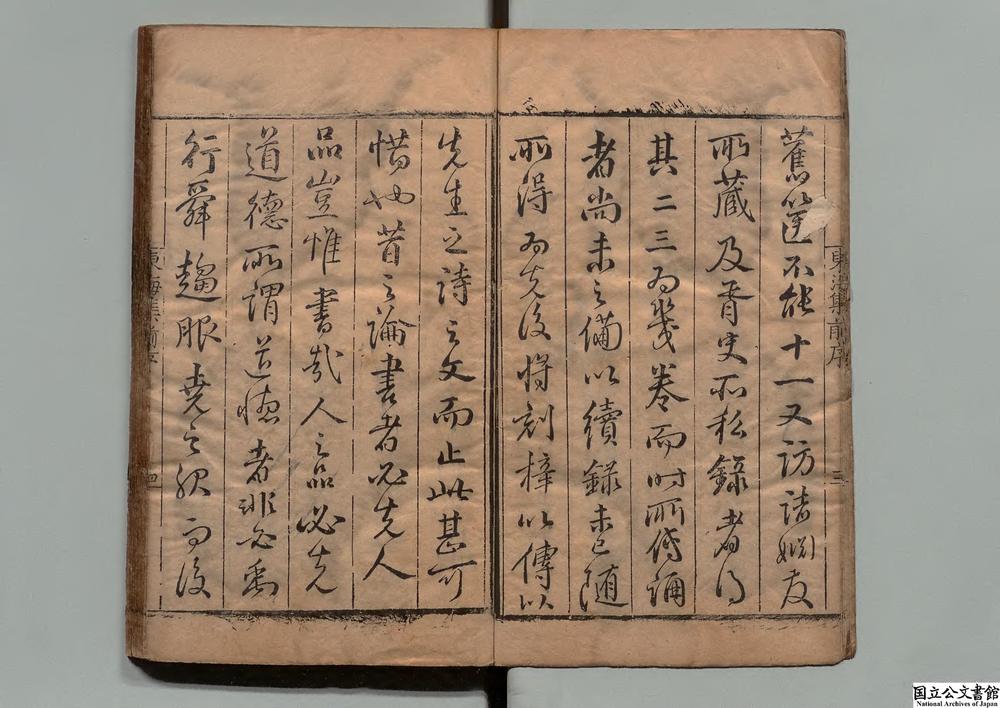 舊篋不能十一又訪諸姻友
所藏及胥史所私錄者得
其二三為幾卷而時所傳誦
者尚未之備以續錄未已隨
所得為先後將刻梓以傳以
先生之詩之文而止此甚可
惜也昔之論書者必先人
品豈惟書哉人之品必先
道德所謂道德者非必禹
行舜趨服堯之服而後
東海集前序
三
東海集前序
四
国立公文書館
National Archives of Japan